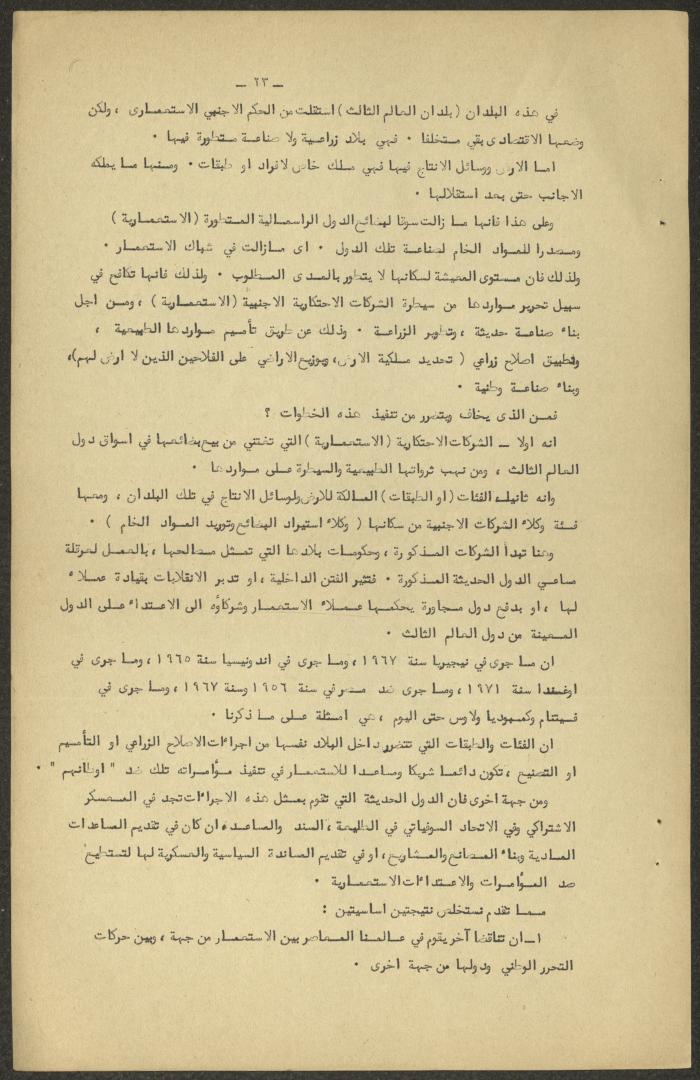 ـ ٢٣ ـ
في هذه البلدان (بلدان العالم الثالث) استقلت من الحكم الاجنبي الاستعمارى ، ولكن
وضعها الاقتصادى بقي متخلفا ٠ فهي بلاد زراعية ولا صناعة متطورة فيها ٠
اما الارض ووسائل الانتاج فيها فهي ملك خاص لافراد او طبقات ٠ ومنها ما يملكه
الاجانب حتى بعد استقلالها ٠
وعلى هذا فانها ما زالت سوقا لبضائع الدول الراسمالية المتطورة (الاستعمارية)
ومصدرا للمواد الخام لصناعة تلك الدول ٠ اى مازالت في شباك الاستعمار ٠
ولذلك فان مستوى المعيشة لسكانها لا يتطور بالمدى المطلوب ٠ ولذلك فانها تكافح في
سبيل تحرير مواردها من سيطرة الشركات الاحتكارية الاجنبية (الاستعمارية) ، ومن اجل
بناء صناعة حديثة ، وتطوير الزراعة ٠ وذلك عن طريق تأميم مواردها الطبيعية ،
وتطبيق اصلاح زراعي ( تحديد ملكية الارض، وتوزيع الاراضي على الفلاحين الذين لا ارض لهم)،
وبناء صناعة وطنية ٠
فمن الذى يخاف ويتضرر من تنفيذ هذه الخطوات ؟
انه اولا ـ الشركات الاحتكارية (الاستعمارية) التي تغتني من بيع بضائعها في اسواق دول
العالم الثالث ، ومن نهب ثرواتها الطبيعية والسيطرة على مواردها ٠
وانه ثانياـ الفئات (او الطبقات) المالكة للارض ولوسائل الانتاج في تلك البلدان ، ومعها
فئة وكلاء الشركات الاجنبية من سكانها ( وكلاء استيراد البضائع وتوريد المواد الخام ) ٠
وهنا تبدأ الشركات المذكورة ، وحكومات بلادها التي تمثل مصالحها ، بالعمل لعرقلة
مساعي الدول الحديثة المذكورة ٠ فتثير الفتن الداخلية ، او تدبر الانقلابات بقيادة عملاء
لها ، او بدفع دول مجاورة يحكمها عملاء الاستعمار وشركاؤه الى الاعتداء على الدول
المعينة من دول العالم الثالث ٠
ان ما جرى في نيجيريا سنة ١٩٦٧ ، وما جرى في اندونيسيا سنة ١٩٦٥ ، وما جرى في
اوغندا سنة ١٩٧١ ، وما جرى ضد مصر في سنة ١٩٥٦ وسنة ١٩٦٧ ، وما جرى في
فيتنام وكمبوديا ولاوس حتى اليوم ، هي امثلة على ما ذكرنا ٠
ان الفئات والطبقات التي تتضرر داخل البلاد نفسها من اجراءات الاصلاح الزراعي او التأميم
او التصنيع ، تكون دائما شريكا ومساعدا للاستعمار في تنفيذ مؤامراته تلك ضد " اوطانهم " ٠
ومن جهة اخرى فان الدول الحديثة التي تقوم بمثل هذه الاجراءات تجد في المعسكر
الاشتراكي وفي الاتحاد السوفياتي في الطليعة ، السند والمساعد، ان كان في تقديم المساعدات
المادية وبناء المصانع والمشاريع ، او في تقديم المساندة السياسية والعسكرية لها لتستطيع
صد المؤامرات والاعتداءات الاستعمارية ٠
مما تقدم نستخلص نتيجتين اساسيتين :
١ـ ان تناقضا آخر يقوم في عالمنا المعاصر بين الاستعمار من جهة ، وبين حركات
التحرر الوطني ودولها من جهة اخرى ٠